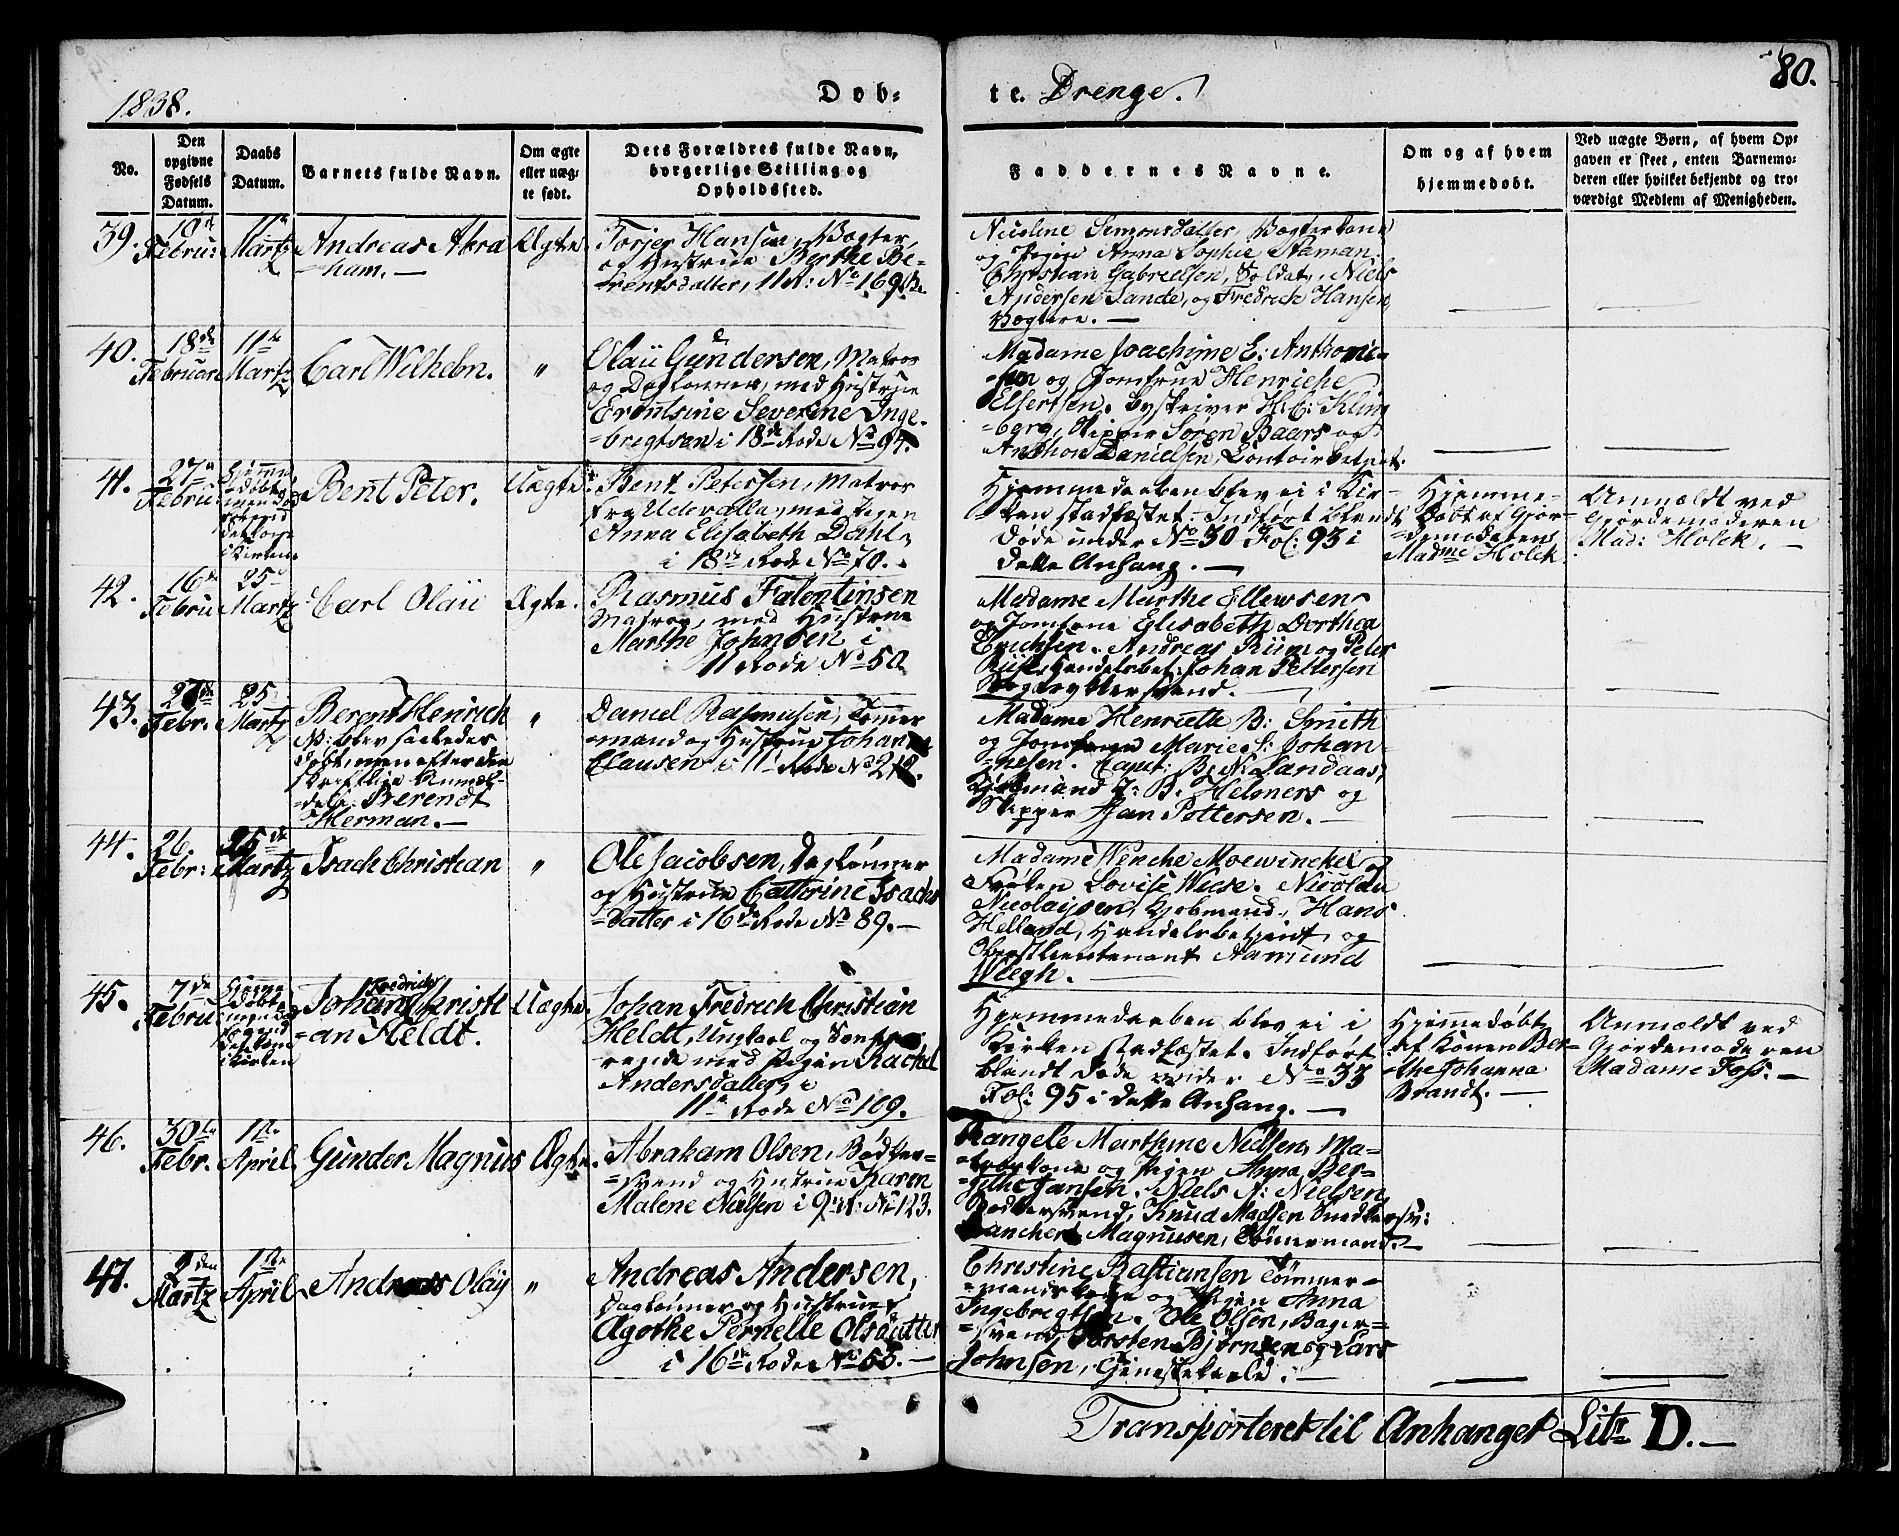 1838.
Døb-
te. Drenge.
80.
No.
Den opgivne Fødsels Datum.
Daabs Datum.
Barnets fulde Navn.
Om ægte eller uægte født.
Dets Forældres fulde Navn, borgerlige Stilling og Opholdssted.
Faddernes Navne.
Om og af hvem hjemmedøbt.
Ved uægte Børn, af hvem Opgaven er skeet, enten Barnemoderen eller hvilket bekjendt og troværdigt Medlem af Menigheden.
39.
Febru:
Martz
Andreas Abra
=ham. —
Ægte
Torjer Hansen, Vægter,
og Hustrue Berthe Be-
rentsdatter, 11 R: No 169.
Nicoline Simonsdatter, Vægterkone
og Pigen Anna Sophie Aaman.
Christian Gabrielsen, Soldat, Niels
Andersen Sande, og Fredrich Hansen
Vægtere. —
40.
18de
Februar
11te
Martz
Carl Wilhelm.
"
Olaü Gundersen, Matros
og Daglønner, med Hustrue
Severine Inge-
=bregtsen i 18de Rode No 94.
Madame Joachime E: Anthonie
=sen og Jomfrue Henriche
Elfertsen. Byskriver H: C: Kling
=berg, Skipper Søren Baars og
Anthon Danielsen, Contoirbetjent.
41.
27
Febru
Hjemme
døbt
Bent Peter.
Uægte
Bent Petersen, Matros
fra Udevalla, med Pigen
Anna Elisabeth Dahl,
i 18de Rode No 70.
Hjemmedaaben blev ei i Kir-
ken stadfæstet. Indført blandt
Døde under No 30 Fol: 95 i
dette Anhang. —
Hjemme-
døbt af Gjor-
demoderen
Madme Holck
Anmældt ved
Gjordemoderen
Mad: Holck. —
42.
16de
Febru
25
Martz
Carl Olaü
Ægte.
Rasmus Falentinsen
Matros, med Hustrue
Marthe Johnsen i
11 Rode No 50
Madame Marthe Ellewsen
og Jomfrue Elisabeth Dorthea
Erichsen. Andreas Riim og Peter
Riis, Handelsbet: Johan Pettersen
43.
27de
Febr.
25
Martz
Berent Henrich
N: blev saaledes
døbt, men efter den
skriftlige Anmæl-
=delse Berendt
Herman. —
"
Daniel Rasmusen, Tømer
=mand og Hustrue Johan
Clausen i 11 Rode No 212.
Madame Henriette B: Smith
og Jomfrue Marie S: Johan-
=nesen. Capt: B: N: Landaas,
Kjøbmand J: B: Helmers og
Skipper Jan Pottersen. —
44.
26.
Febr:
25de
Martz
Isach Christian
"
Ole Jacobsen, Daglønner
og Hustrue Cathrine Isachs
=datter i 16de Rode No 89. —
Madame Wenche Moewinckel og
Frøken Lovise Wiese. Nicolai
Nicolaysen, Kjøbmand, Hans
Helland, Handelsbetjent, og
Oberstlieutenant Aamund
Wiegh. —
45.
7de
Febru
Hjemme
døbt
i Kirken
Johan Fredrich Christi
=an Heldt.
Uægte.
Johan Fredrich Christian
Heldt, Ungkarl og
=rende med Pigen Rachel
Andersdatter, i
11te Rode No 109.
Hjemmedaaben blev ei i
Kirken stadfæstet. Indført
blandt Døde under No 33
Fol: 95 i dette Anhang. —
Hjemmedøbt
af Konen Ber-
=the Johanna
Brandt. —
Anmældt ved
Gjordemoderen
Madame Foss. —
46.
30te
Febr.
1ste
April.
Gunder Magnus
Ægte.
Abraham Olsen, Bødker-
=svend og Hustrue Karen
Malene Nielsen i 9de R: No 123.
Rangele Marthine Nielsen, Ma-
=troskone og Pigen Anna Ber-
=githe Jansen. Niels A: Nielsen
Bødkersvend, Knud Madsen Snedkersv:
Magnusen, Tømermand. —
47.
9den
Martz
1ste
April
Andreas Olay
"
Andreas Andersen,
Daglønner og Hustrue
Agothe Pernelle Olsdatter
i 16de Rode No 55. —
Christine Bastiansen Tømmer-
=mandskone og Pigen Anna
Ingebregtsen. Ole Olsen, Bager-
=svend, Torsten Bjørnsen og Lars
Johnsen, Tjenestekarle. —
Transporteret til Anhanget Litr D. —